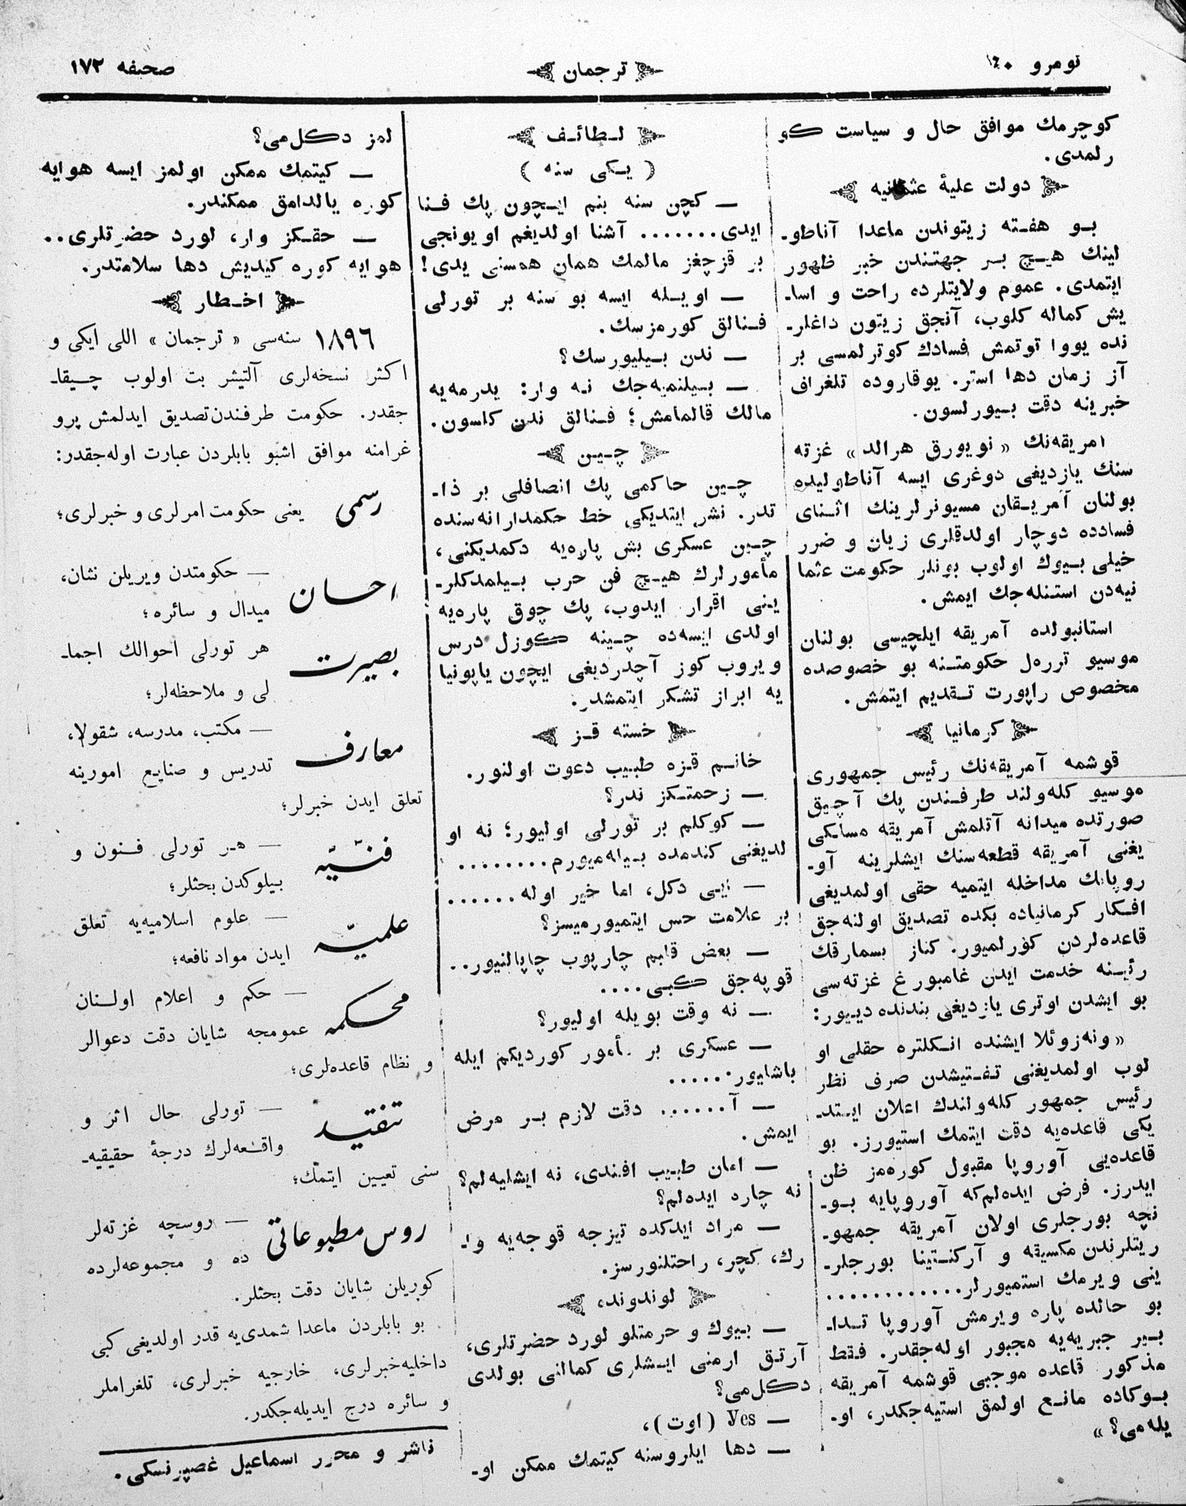 نومرو
ترجمان
صحیفه ١٧٣
كوچرمك موافق حال و سیاست كو
رلمدی.
دولت علیهٔ عثمانیه
بو هفته زیتوندن ماعدا آناطو-
لینك هیچ بر جهتندن خبر ظهور
ایتمدی. عموم ولایتلرده راحت و اسا-
یش كماله كلوب، آنجق زیتون داغلر-
نده یووا توتمش فسادك كوترلمسی بر
آز زمان دها استر. یوقاروده تلغراف
خبرینه دقت بیورلسون.
امریقه‌نك «نویورق هرالد» غزته
سنك یازدیغی دوغری ایسه آناطولیده
بولنان آمریقان مسیونرلرینك اثنای
فسادده دوچار اولدقلری زیان و ضرر
خیلی بیوك اولوب بونلر حكومت عثما
نیه‌دن استنله‌جك ایمش.
استانبولده آمریقه ایلچیسی بولنان
موسیو تررەل حكومتنه بو خصوصده
مخصوص راپورت تقدیم ایتمش.
كرمانیا
قوشمه آمریقه‌نك رئیس جمهوری
موسیو كله‌ولند طرفندن پك آچیق
صورتده میدانه آتلمش آمریقه مسلكی
یغنی آمریقه قطعه‌سنك ایشلرینه آو-
روپانك مداخله ایتمیه حقی اولمدیغی
افكار كرمانیاده بكده تصدیق اولنه‌جق
قاعده‌لردن كورلمیور. كناز بسمارقك
رئینه خدمت ایدن غامبورغ غزته‌سی
بو ایشدن اوتری یازدیغی بندنده دییور:
«ونه‌زوئلا ایشنده انكلتره حقلی او
لوب اولمدیغنی تفتیشدن صرف نظر
رئیس جمهور كله‌ولندك اعلان ایتد-
یكی قاعده‌یه دقت ایتمك استیورز. بو
قاعده‌یی آوروپا مقبول كوره‌مز ظن
ایدرز. فرض ایده‌لم‌كه آوروپایه بو-
نچه بورجلری اولان آمریقه جمهو-
ریتلرندن مكسیقه و آركنتینا بورجلر-
ینی ویرمك استمیورلر............
بو حالده پاره ویرمش آوروپا تدا-
بیر جبریه‌یه مجبور اوله‌جقدر. فقط
مذكور قاعده موجبی قوشمه آمریقه
بوكاده مانع اولمق استیه‌جكدر، او-
یله‌می؟»
لطائف
(یكی سنه)
— كچن سنه بنم ایچون پك فنا
ایدی....... آشنا اولدیغم اویونجی
بر قزچغز مالمك همان همسنی یدی!
— اویله ایسه بو سنه بر تورلی
فنالق كورمزسك.
— ندن بیلیورسك؟
— بیلنمیه‌جك نه وار: یدرمه‌یه
مالك قالمامش؛ فنالق ندن كلسون.
چین
چین حاكمی پك انصافلی بر ذا-
تدر. نشر ایتدیكی خط حكمدارانه‌سنده
چین عسكری بش پاره‌یه دكمدیكنی،
مأمورلرك هیچ فن حرب بیلمدكلر-
ینی اقرار ایدوب، پك چوق پاره‌یه
اولدی ایسه‌ده چینه كوزل درس
ویروب كوز آچدردیغی ایچون یاپونیا
یه ابراز تشكر ایتمشدر.
خسته قز
خانم قزه طبیب دعوت اولنور.
— زحمتكز ندر؟
— كوكلم بر تورلی اولیور؛ نه او
لدیغنی كندمده بیله‌میورم........
— ایی دكل، اما خیر اوله......
بر علامت حس ایتمیورمیسز؟
— بعض قلبم چارپوب چاپالنیور..
قوپه‌جق كبی....
— نه وقت بویله اولیور؟
— عسكری بر مأمور كوردیكم ایله
باشلیور......
— آ...... دقت لازم بر مرض
ایمش.
— امان طبیب افندی، نه ایشلیه‌لم؟
نه چاره ایده‌لم؟
— مراد ایدكده تیزجه قوجه‌یه وا-
رك، كچر، راحتلنورسز.
لوندوند،
— بیوك و حرمتلو لورد حضرتلری،
آرتق ارمنی ایشلری كمالنی بولدی
دكل‌می؟
— Yes (اوت)،
— دها ایلروسنه كیتمك ممكن او-
لمز دكل‌می؟
— كیتمك ممكن اولمز ایسه هوایه
كوره یالدامق ممكندر.
— حقكز وار، لورد حضرتلری..
هوایه كوره كیدیش دها سلامتدر.
اخطار
١٨٩٦ سنه‌سی «ترجمان» اللی ایكی و
اكثر نسخه‌لری آلتیشر بت اولوب چیقا-
جقدر. حكومت طرفندن تصدیق ایدلمش پرو
غرامنه موافق اشبو بابلردن عبارت اوله‌جقدر:
رسمی یعنی حكومت امرلری و خبرلری؛
احسان — حكومتدن ویریلن نشان،
میدال و سائره؛
بصیرت هر تورلی احوالك اجما-
لی و ملاحظه‌لر؛
معارف — مكتب، مدرسه، شقولا،
تدریس و صنایع امورینه
تعلق ایدن خبرلر؛
فنیّه — هر تورلی فنون و
بیلوكدن بحثلر؛
علمیّه — علوم اسلامیه‌یه تعلق
ایدن مواد نافعه؛
محكمه — حكم و اعلام اولنان
عمومجه شایان دقت دعوالر
و نظام قاعده‌لری؛
تنقید — تورلی حال اثر و
واقعه‌لرك درجهٔ حقیقیه-
سنی تعیین ایتمك؛
روس مطبوعاتی — روسچه غزته‌لر
ده و مجموعه‌لرده
كوریلن شایان دقت بحثلر.
بو بابلردن ماعدا شمدی‌یه قدر اولدیغی كبی
داخلیه‌خبرلری، خارجیه خبرلری، تلغراملر
و سائره درج ایدیله‌جكدر.
ناشر و محرر اسماعیل غصپرنسكی.